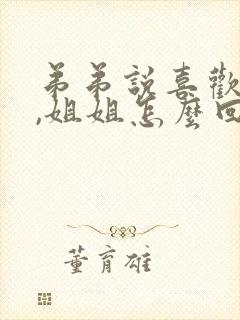 弟弟說喜歡
,姐姐怎麼回
董育雄